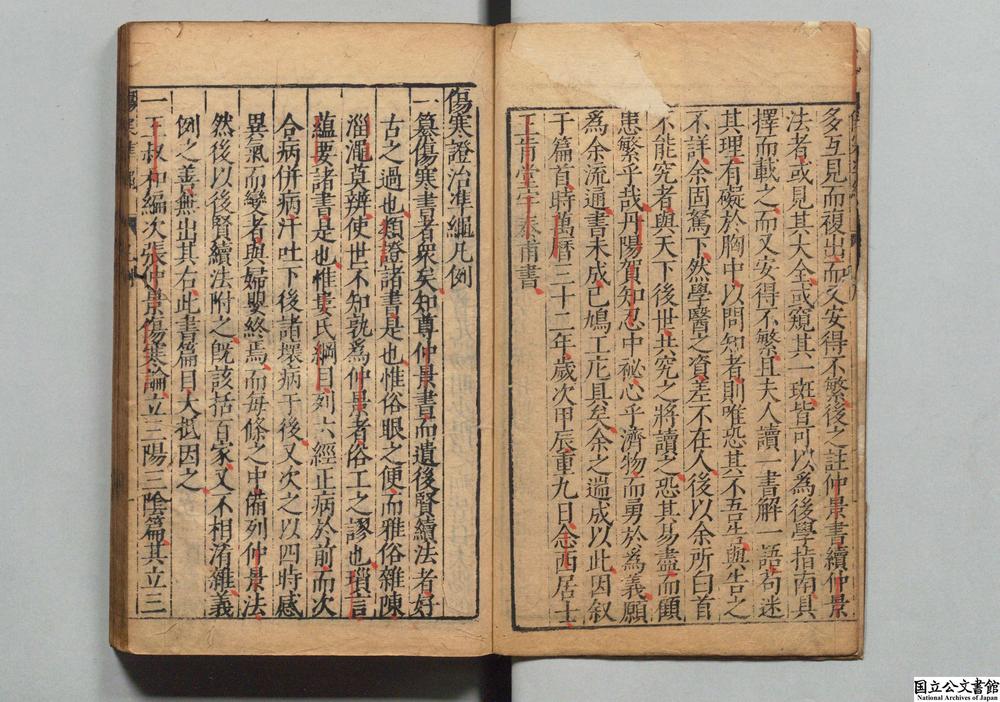 多互見而複出而又安得不繁後之註仲景書續仲景
法者或見其大全或窺其一斑皆可以為後學指南具
擇而載之而又安得不繁且夫人讀一書解一語苟迷
其理有礙於胸中以問知者則唯恐其不吾告與告之
不詳余固駑下然學醫之資差不在人後以余所白首
不能究者與天下後世共究之將讀之恐其易盡而顧
患繁乎哉丹陽賀知忍中祕心乎濟物而勇於為義願
為余流通書未成已鳩工庀具矣余之遄成以此因叙
于篇首時萬曆三十二年歲次甲辰重九日念西居士
王肯堂宇泰甫書
傷寒證治準繩凡例
一纂傷寒書者衆矣知尊仲景書而遺後賢續法者好
古之過也類證諸書是也惟俗眼之便而雅俗雜陳
淄澠莫辨使世不知孰為仲景者俗工之謬也瑣言
蘊要諸書是也惟婁氏綱目列六經正病於前而次
合病併病汗吐下後諸壞病于後又次之以四時感
異氣而變者與婦嬰終焉而每條之中備列仲景法
然後以後賢續法附之旣該括百家又不相淆雜義
例之善無出其右此書篇目大抵因之
一王叔和編次張仲景傷寒論立三陽三陰篇其立三
国立公文書館
National Archives of Japan